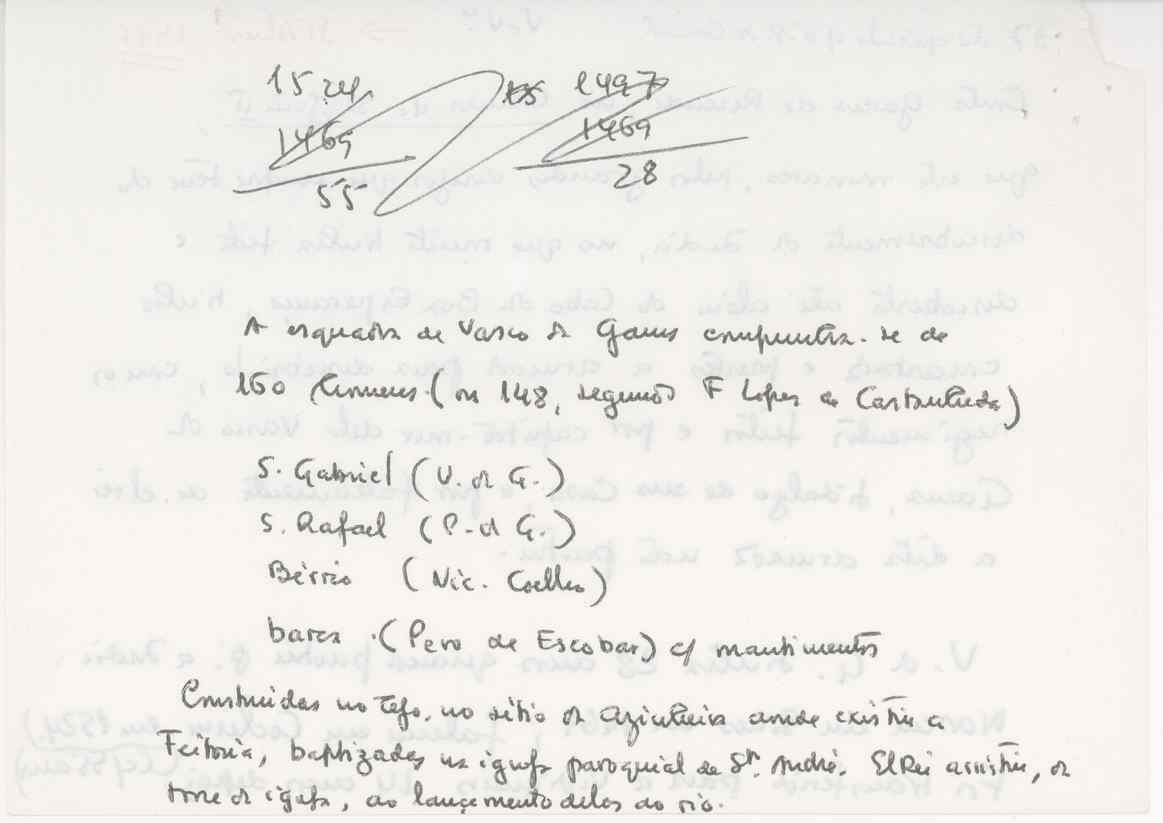 1524 1497
1469 1469
55 28
A esquadra de Vasco da Gama compunha-se de
160 homens (ou 148, segundo F Lopes de Castanheda)
S. Gabriel (V. da G.)
S. Rafael (P. da G.)
Bérrio (Nic. Coelho)
barca (Pero de Escobar) c/ mantimentos
Construídas no Tejo, no sítio da Azinheira onde existia a
Feitoria, baptizadas na igreja paroquial de Stº. André. El Rei assistiu, da
torre da igreja, ao lançamento delas ao rio.